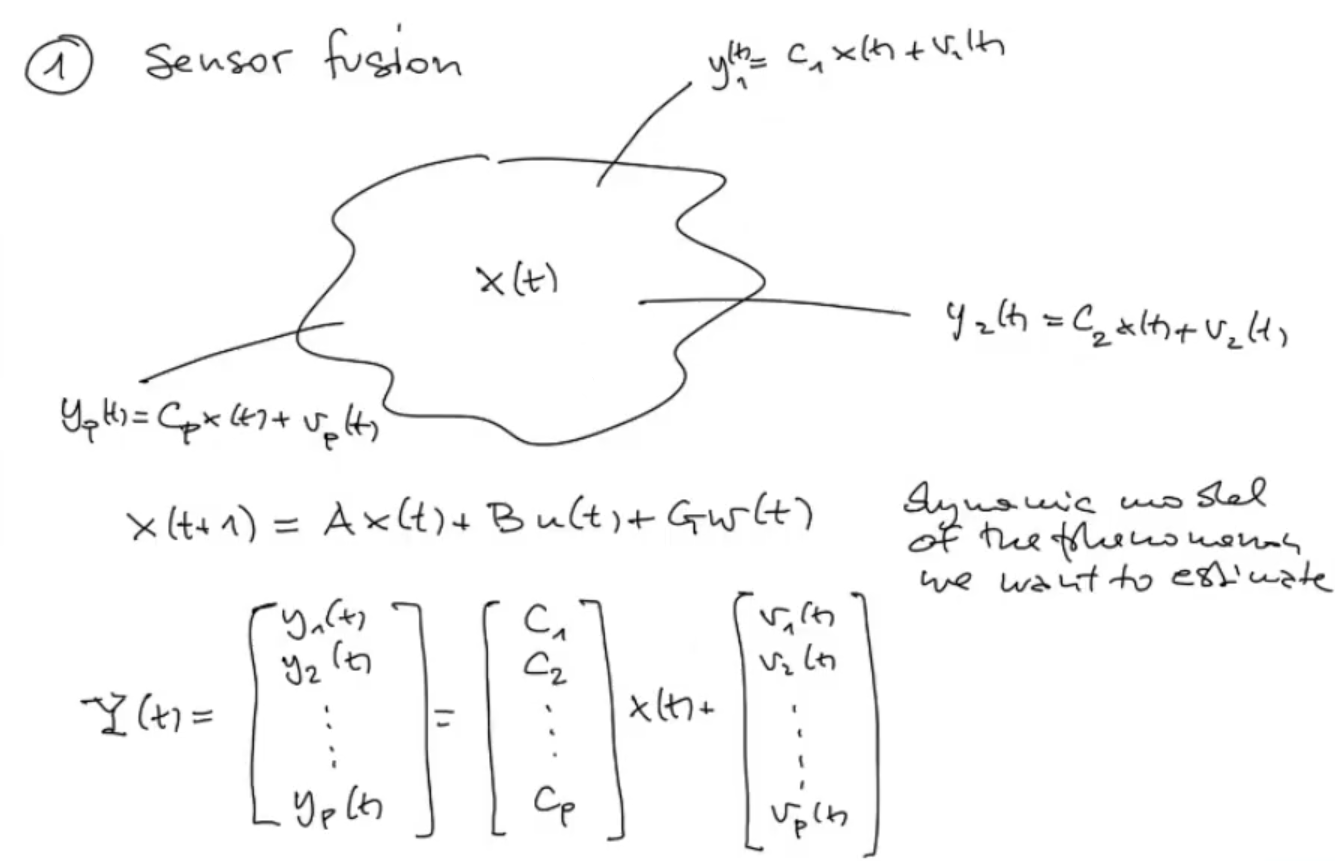 ① Sensor fusion
y₁(t) = C₁ x(t) + v₁(t)
x(t)
y₂(t) = C₂ x(t) + v₂(t)
yₚ(t) = Cₚ x(t) + vₚ(t)
x(t+1) = A x(t) + B u(t) + G w(t)
dynamic model
of the phenomenon
we want to estimate
Y(t) = [ y₁(t) y₂(t) ⋮ yₚ(t) ] = [ C₁ C₂ ⋮ Cₚ ] x(t) + [ v₁(t) v₂(t) ⋮ vₚ(t) ]